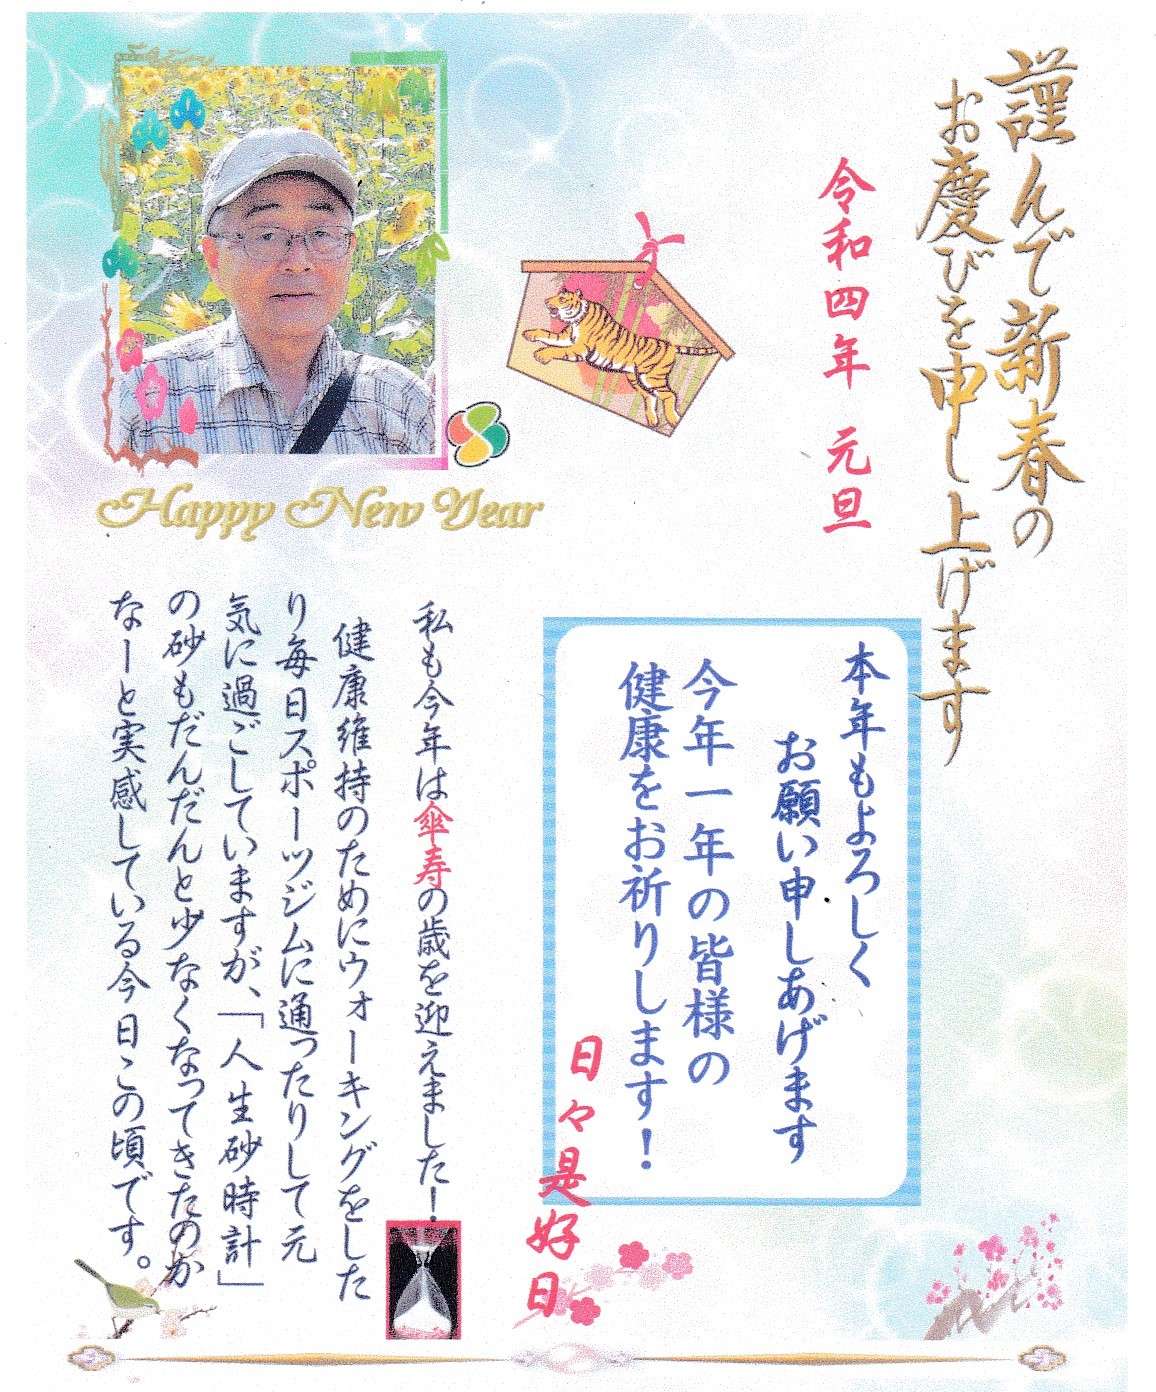 謹んで新春の
お慶びを申し上げます
令和四年 元旦
Happy New Year
本年もよろしく
お願い申しあげます
今年一年の皆様の
健康をお祈りします！
日々是好日
私も今年は傘寿の歳を迎えました！
健康維持のためにウォーキングをした
り毎日スポーツジムに通ったりして元
気に過ごしていますが、「人生砂時計」
の砂もだんだんと少なくなってきたのか
なーと実感している今日この頃です。